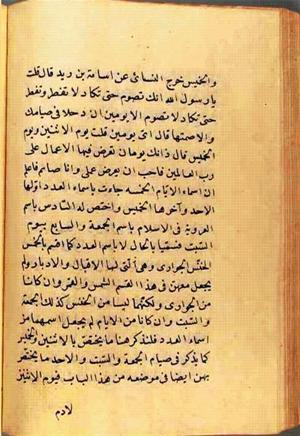 والخميس خرج النسائى عن اسامة بن زيد قال قلت
يا رسول الله انك تصوم حتى تكاد لا تفطر وتفطر
حتى تكاد لا تصوم الا يومين ان دخلا فى صيامك
والا صمتها قال اى يومين قلت يوم الاثنين ويوم
الخميس قال ذانك يومان تعرض فيها الاعمال على
رب العالمين فاحب ان يعرض على وانا صائم فاعلم
ان اسماء الايام الخمسه جاءت باسماء العدد اولها
الاحد وآخرها الخميس واختص له السادس باسم
العروبة فى الاسلام باسم الجمعة والسابع بيوم
السبت فسميا بالحال لا باسم العدد كما اقسم بالخمس
الخنس الجوارى وهى التى لها الاقبال والادبار ولم
يجعل معهن فى هذا القسم الشمس والقمر وان كانا
من الجوارى ولكنهما ليسا من الخنس كذلك الجمعة
والسبت وان كانا من الايام لم يجعل اسمهما من
اسماء العدد فلنذكر هنا ما يختص بالاثنين والخميس
كما يذكر فى صيام الجمعة والسبت والاحد ما يختص
بهن ايضا فى موضعه من هذا الباب فيوم الاثنين
لادم